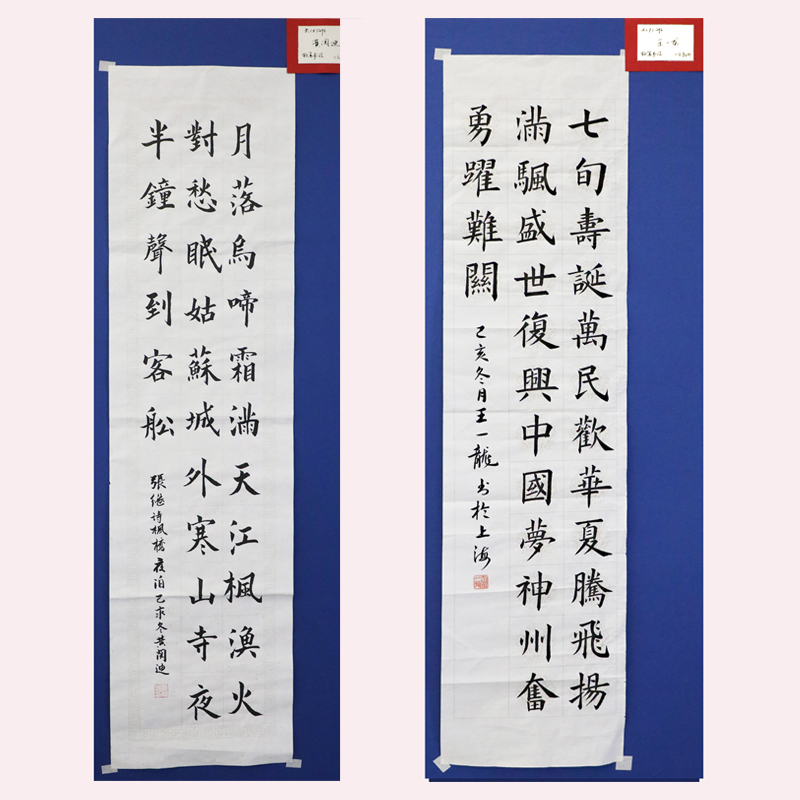 月落烏啼霜滿天江楓漁火
對愁眠姑蘇城外寒山寺夜
半鐘聲到客舩
張继诗楓橋夜泊己亥冬黄闰迪
七旬壽誕萬民歡華夏騰飛揚
滿颿盛世復興中國夢神州奮
勇躍難關
己亥冬月王一龍书於上海